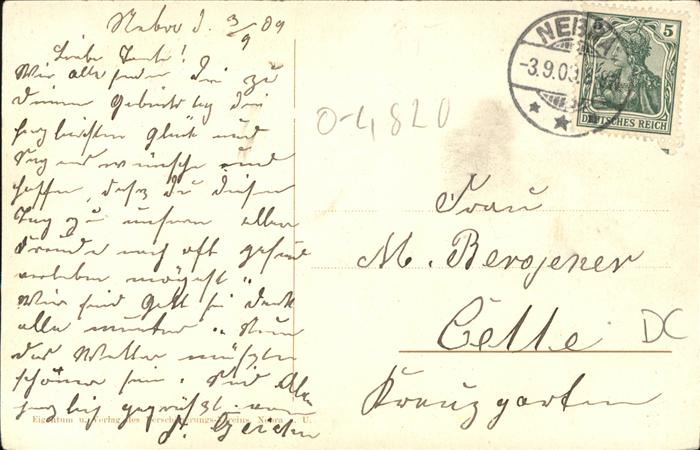 Nebra d. 3/9 09
Liebe Tante!
Wir alle senden Dir zu
Deinem Geburtstag die
herzlichsten Glück und
Segenswünsche und
hoffen, dass Du diesen
Tag zu unserer aller
Freude noch oft gesund
verleben mögest.
Wir sind Gott sei Dank
alle munter. Nun
das Wetter müsste
schöner sein. Sei
herzlich gegrüsst von
Eigentum u. Verlag des Verschönerungs-Vereins, Nebra a. U.
NEBRA
-3.9.09.
5
DEUTSCHES REICH
0-4820
Frau
M.
Celle
DC
Kreuzgarten